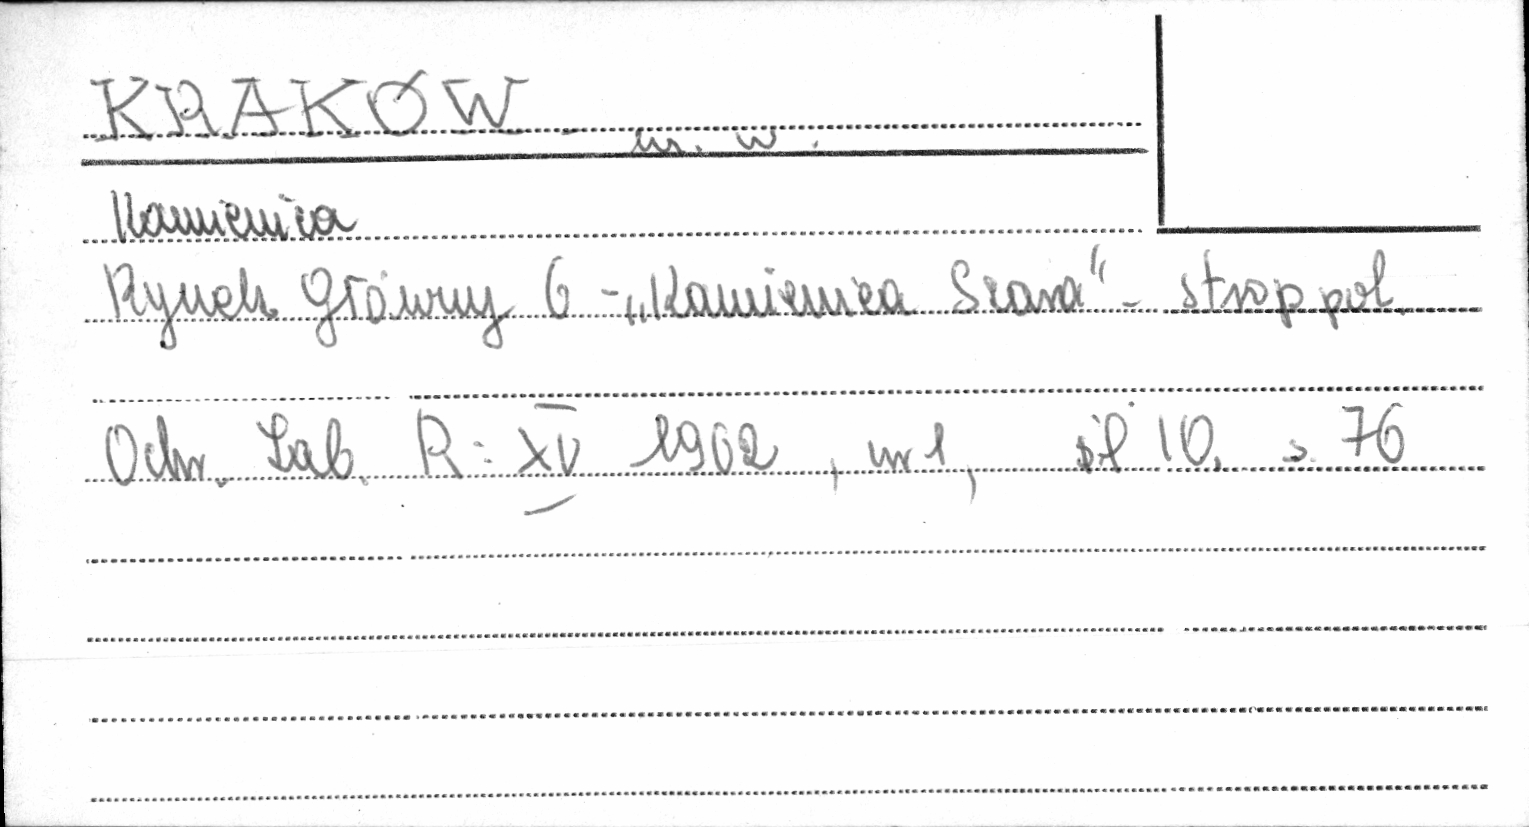 KRAKÓW
m. w.
Kamienica
Rynek Główny 6 - „Kamienica Szara" - strop pol.
Ochr. Zab. R: XV 1962, nr 1, il 10, s. 76